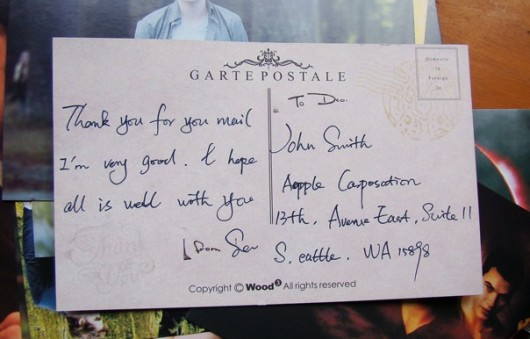 GARTEPOSTALE
Thank you for you mail
I'm very good. I hope
all is well with you
To Deo.
John Smith
Aopple Carposation
13th. Avenue East, Suite 11
S. eattle. WA 15898
Thank
You
Copyright © Wood³ All rights reserved